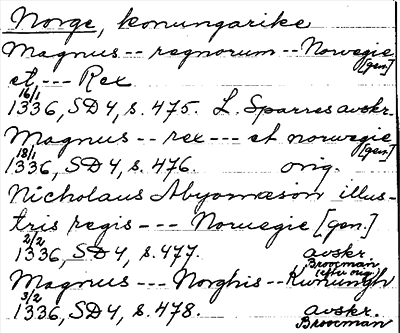 Norge, konungarike
Magnus -- regnorum -- Norwegie [gen.]
et --- Rex
16/1
1336, SD 4, s. 475. L. Sparres avskr.
Magnus -- rex -- et norwegie [gen.]
18/1
1336, SD 4, s. 476. orig.
Nicholaus Abyornæson illus-
tris regis --- Norwegie [gen.]
2/2
1336, SD 4, s. 477. avskr. Brocman (efter orig.)
Magnus --- Norghis -- Kunungh
3/2
1336, SD 4, s. 478. avskr. Brocman